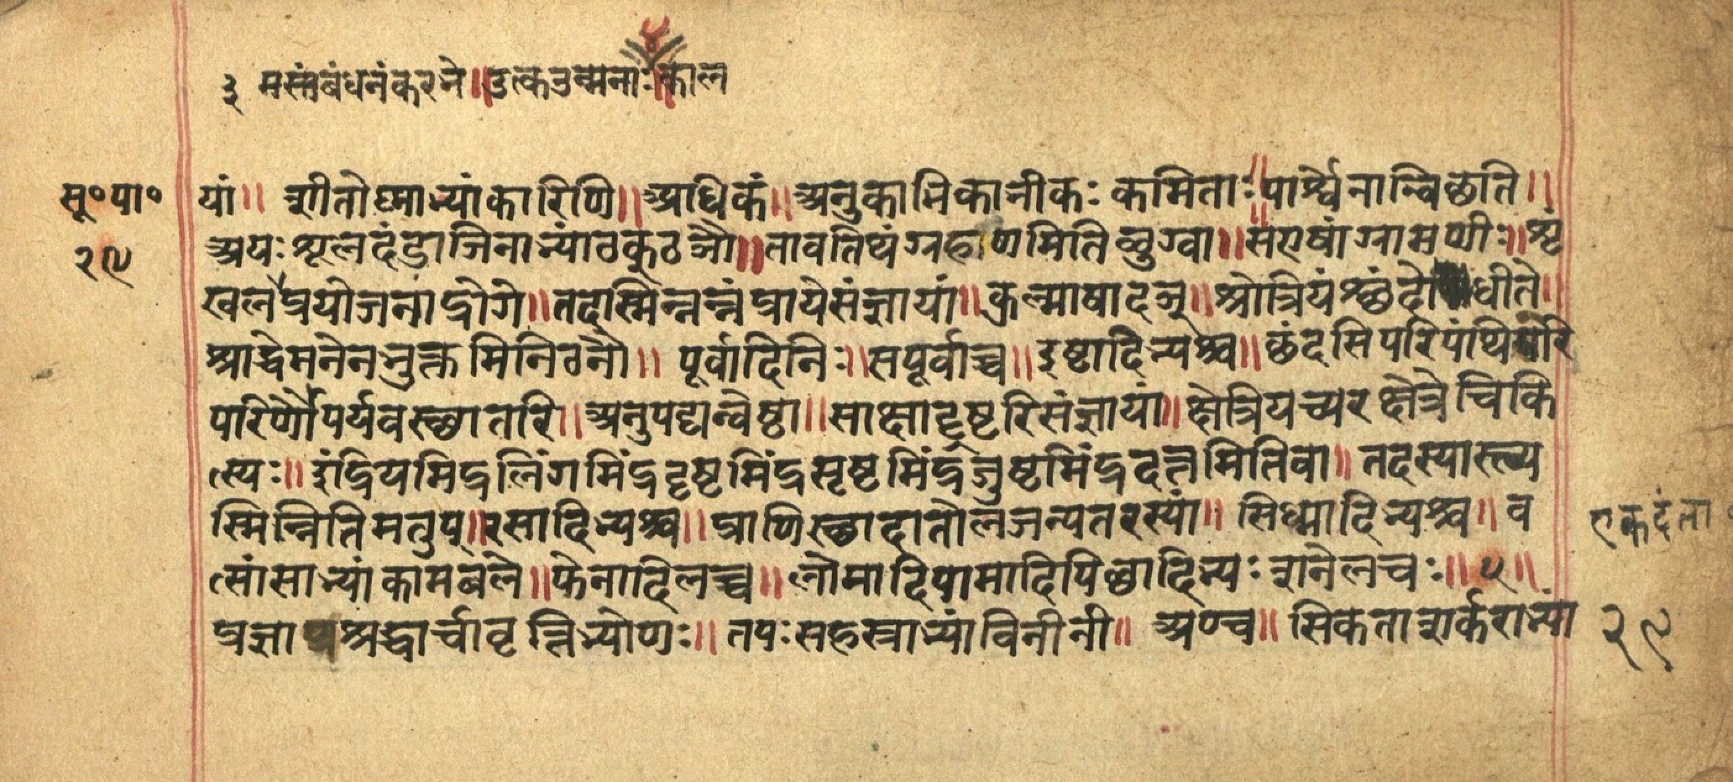 ३ मस्संबंधनं करने॥ उत्क उन्मनाः॥ काल
सू॰ पा॰
२९
यां॥ शीतोष्णाभ्यां कारिणि॥ अधिकं॥ अनुकाभिकाभीकः कमिता॥ पार्श्वेनान्विछति॥
अयः शूलदंडाजिनाभ्यां ठकठञौ॥ तावतिथं ग्रहणमिति लुग्वा॥ स एषां ग्रामणीः॥ शृं
खल प्रयोजना द्रोगे॥ तदस्मिन्नन्नं प्राये संज्ञायां॥ कुल्माषादञ्॥ श्रोत्रियंश्छंदोधीते॥
श्राद्धेमनेन भुक्तमिनिठनौ॥ पूर्वादिनिः॥ सपूर्वाच्च॥ इष्टादिभ्यश्च॥ छंदसि परिपंथिपरि
परिणौ पर्यवस्छातरि॥ अनुपद्यन्वेष्टा॥ साक्षाद्दृष्टरि संज्ञायां॥ क्षेत्रियच्परक्षेत्रे चिकि
त्स्यः॥ इंद्रियमिंद्रलिंगमिंद्रदृष्टमिंद्रसृष्टमिंद्रजुष्टमिंद्रदत्तमिति वा॥ तदस्यास्त्य
स्मिन्निति मतुप्॥ रसादिभ्यश्च॥ प्राणिस्छादातो लजन्यतरस्यां॥ सिध्मादिभ्यश्च॥ व
त्सांसाभ्यां कामबले॥ फेनादिलच्च॥ लोमादिपामादिपिछादिभ्यः शनेलचः॥ ५॥
प्रज्ञाश्रद्धार्चावृत्तिभ्यो णः॥ तपः सहस्त्राभ्यां विनीनी॥ अण्च॥ सिकताशर्कराभ्यां
एकदंता
२९